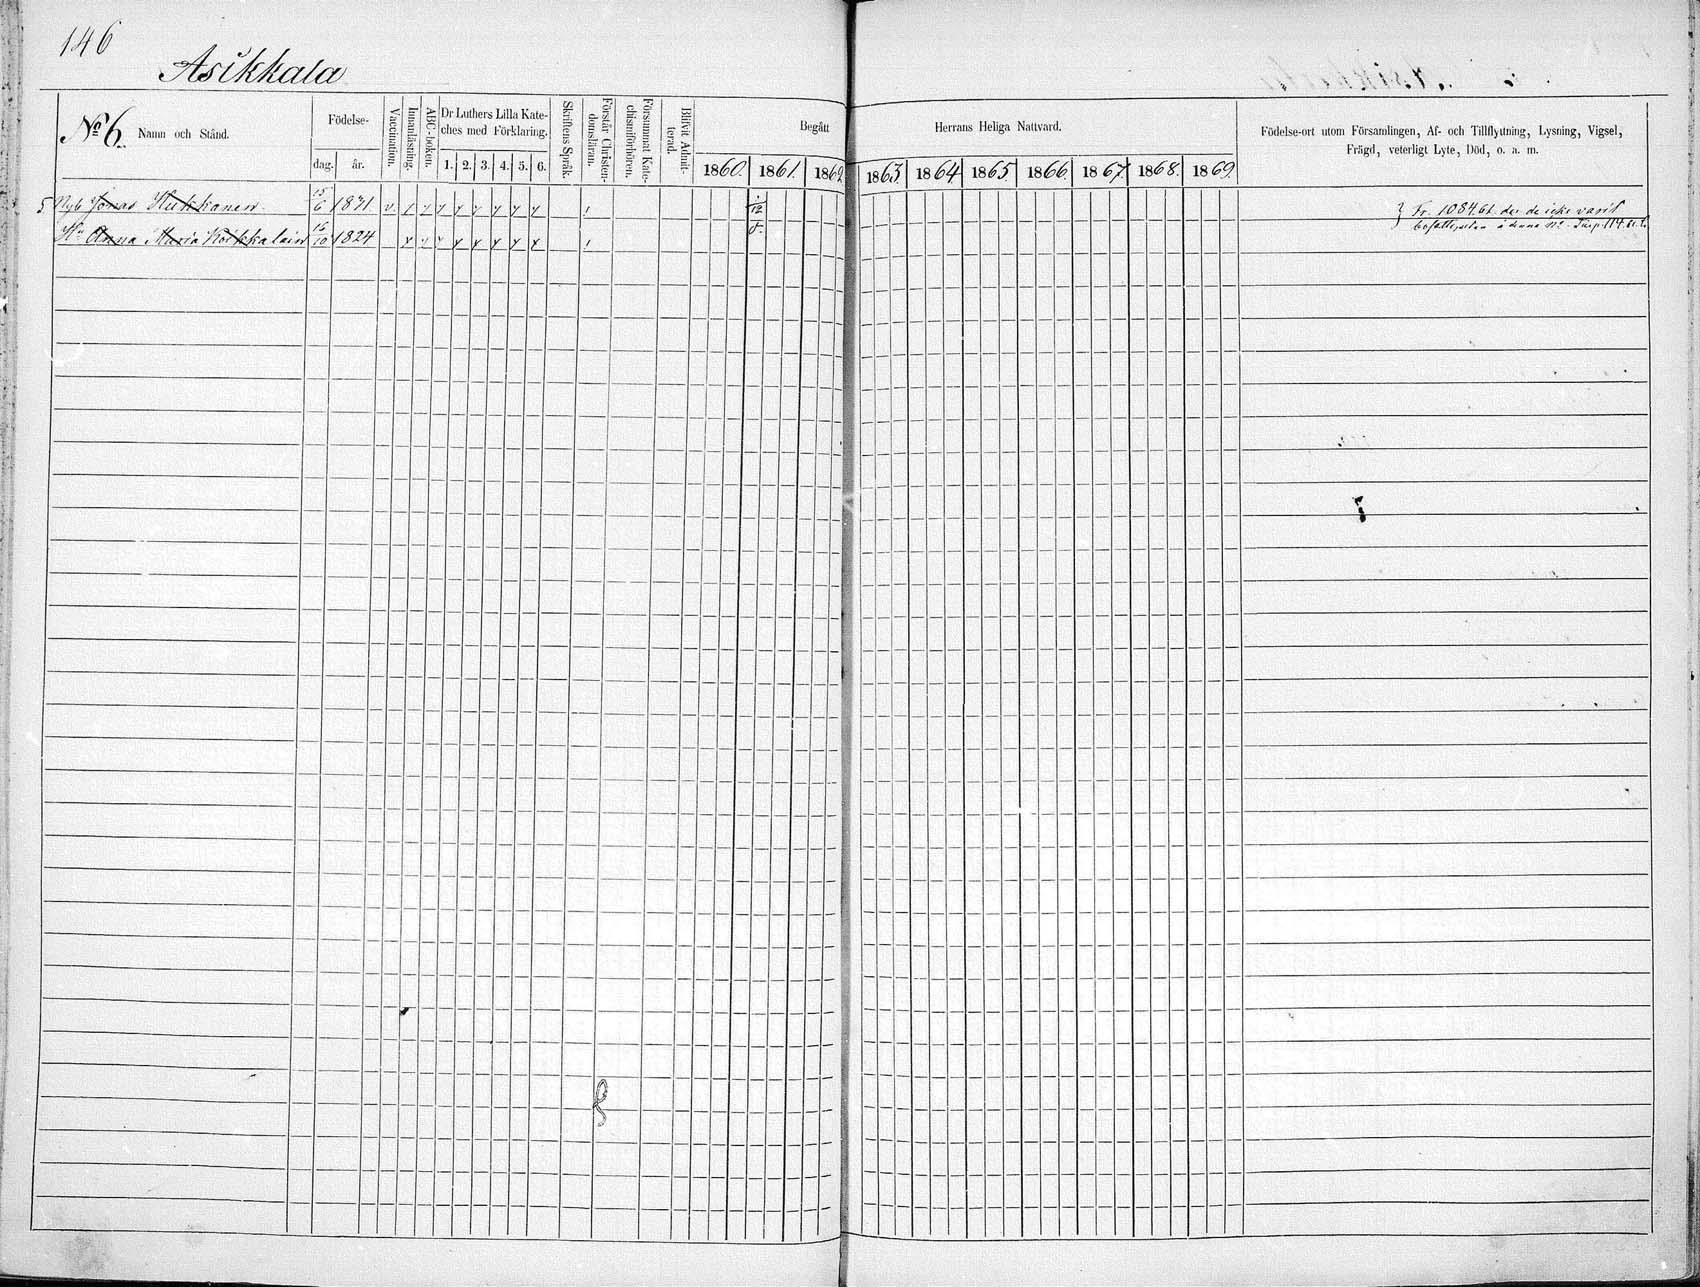 146
Asikkala
No 6. Namn och Stånd.
Födelse-
dag. år.
Vaccination.
Innanläsning.
ABC-boken.
Dr Luthers Lilla Kate-
ches med Förklaring.
1. 2. 3. 4. 5. 6.
Skriftens Språk.
Förstår Christen-
domsläran.
Försummat Kate-
chismiförhören.
Blifvit Admit-
terad.
Begått Herrans Heliga Nattvard.
1860. 1861. 1862 1863. 1864 1865. 1866. 1867. 1868. 1869.
Födelse-ort utom Församlingen, Af- och Tillflyttning, Lysning, Vigsel,
Frägd, veterligt Lyte, Död, o. a. m.
5 Nyb Jonas Hukkanen 15/6 1831 v.
Fr. 1084.61. der de icke varit
Hu Anna Maria Koikkalain 15/10 1824